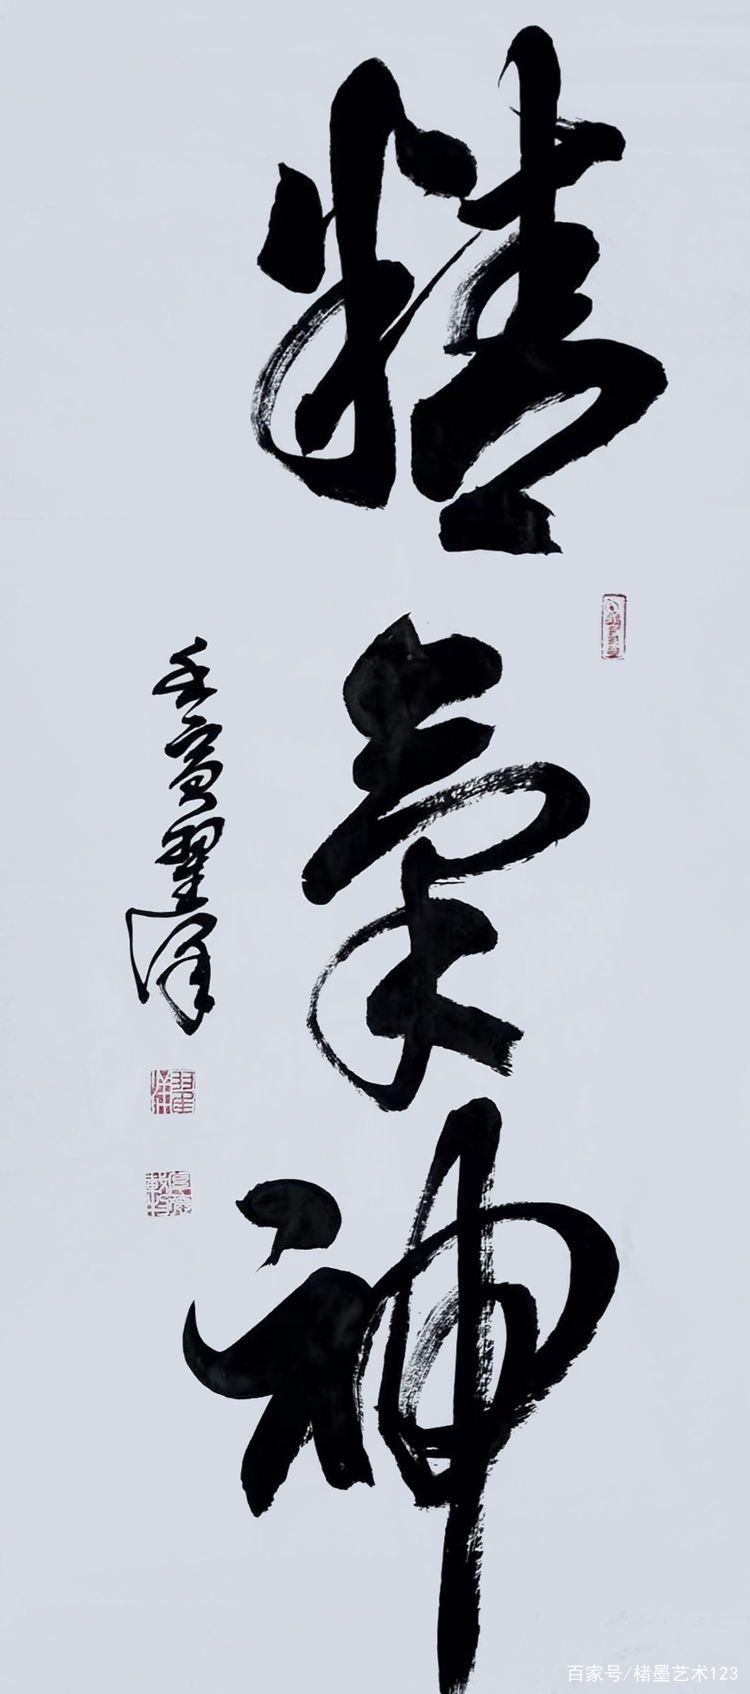 精氣神
壬寅翟洋
百家号/楮墨艺术123